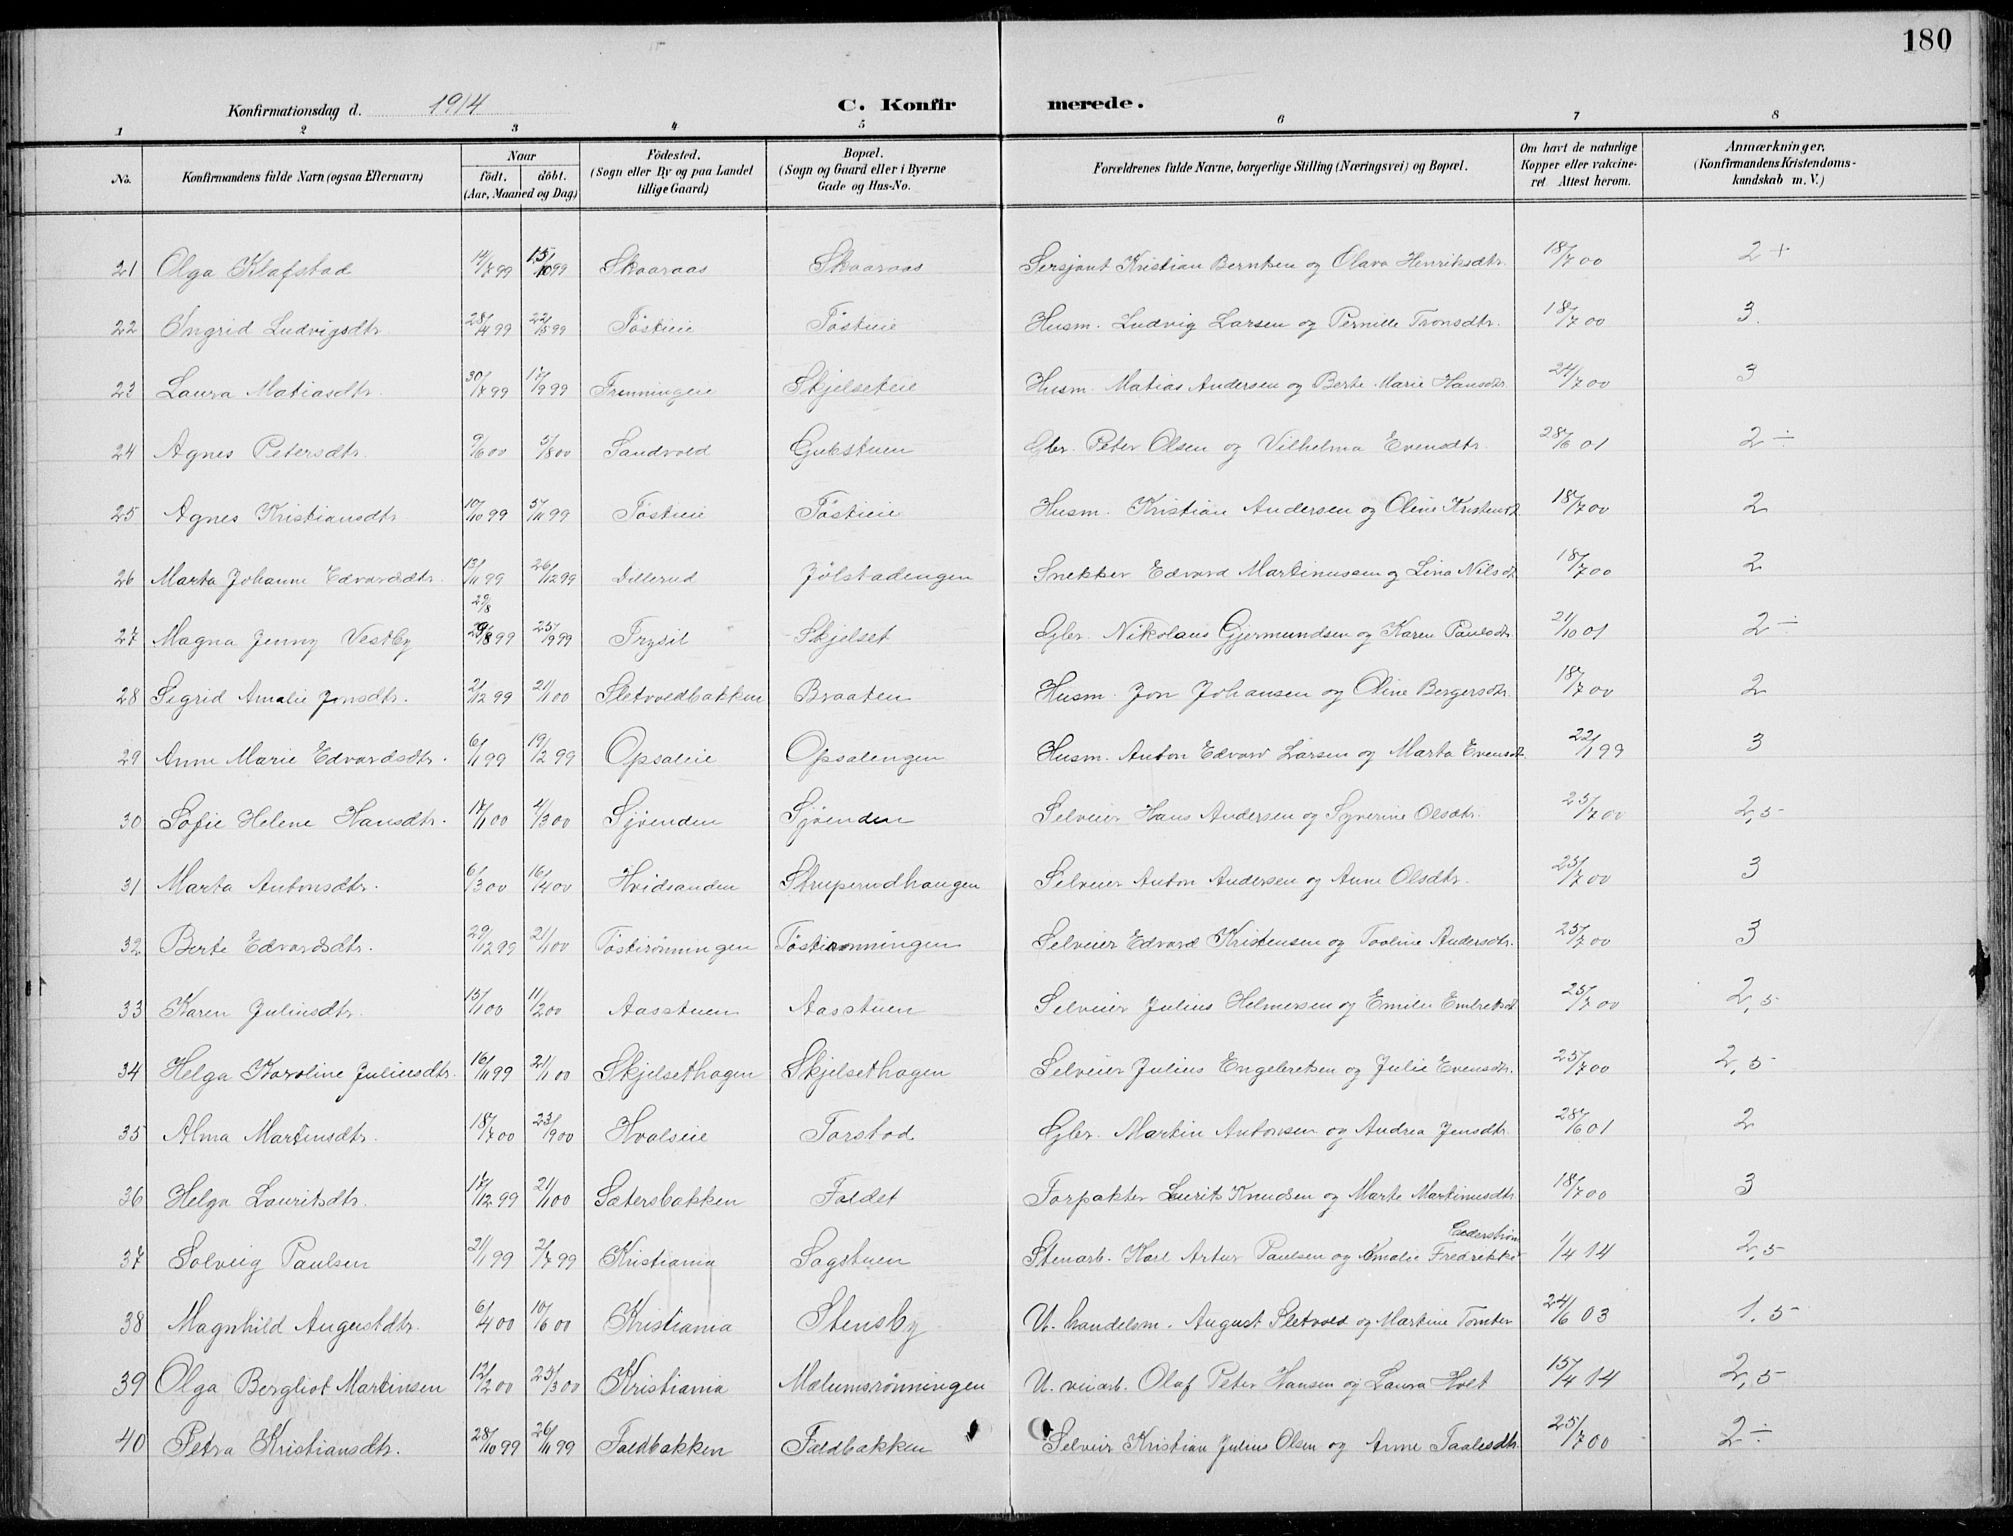 180
Konfirmationsdag d. 1914 C. Konfirmerede.
1 2 3 4 5 6 7 8
No. Konfirmandens fulde Navn (ogsaa Efternavn) Naar födt. döbt. (Aar, Maaned og Dag) Födested. (Sogn eller By og paa Landet tillige Gaard) Bopæl. (Sogn og Gaard eller i Byerne Gade og Hus-No.) Forældrenes fulde Navne, borgerlige Stilling (Næringsvei) og Bopæl. Om havt de naturlige Kopper eller vakcineret Attest herom. Anmærkninger, (Konfirmandens Kristendomskundskab m. V.)
21 Olga Klafstad 14/7 99 15/10 99 Skaaraas Skaaraas Sersjant Kristian Berntsen og Olava Henriksdtr. 18/7 00 2+
22 Ingrid Ludvigsdtr. 28/4 99 22/5 99 Töstieie Töstieie Husm. Ludvig Larsen og Pernille Tronsdtr. 18/7 00 3.
23 Laura Matiasdtr. 30/7 99 17/9 99 Skjelseteie Husm. Matias Andersen og Berte Marie Hansdtr. 24/7 00 3
24 Agnes Petersdtr. 9/6 00 5/8 00 Sandvold Gubstuen Gbr. Peter Olsen og Vilhelma Evensdtr. 28/6 01 2 ÷
25 Agnes Kristiansdtr. 10/10 99 5/11 99 Töstieie Töstieie Husm. Kristian Andersen og Oline Kristensd. 18/7 00 2
26 Marta Johanne Edvardsdtr. 13/11 99 26/12 99 Dillerud Jölstadengen Snekker Edvard Martinussen og Lina Nilsdt. 18/7 00 2
29/8
27 Magna Jenny Vestby 29/8 99 25/9 99 Trysil Skjelset Gbr. Nikolaus Gjermundsen og Karen Paulsdtr. 21/10 01 2 ÷
28 Sigrid Amalie Jonsdtr. 2/12 99 21/1 00 Sletvoldbakken Braaten Husm. Jon Johansen og Oline Bergersdtr. 18/7 00 2
29 Anne Marie Edvardsdtr. 6/11 99 19/12 99 Opsaleie Opsalengen Husm. Anton Edvard Larsen og Marta Evensdt. 22/1 99 3
30 Sofie Helene Hansdtr. 17/1 00 4/3 00 Sjöenden Sjöenden Selveier Hans Andersen og Syverine Olsdtr. 25/7 00 2,5
31 Marta Antonsdtr. 6/3 00 16/4 00 Hvidsanden Struperudhaugen Selveier Anton Andersen og Anne Olsdtr. 25/7 00 3
32 Berte Edvardsdtr. 29/12 99 21/1 00 Töstirönningen Töstirönningen Selveier Edvard Kristensen og Taaline Andersdtr. 25/7 00 3
33 Karen Juliusdtr. 15/1 00 11/2 00 Aasstuen Aasstuen Selveier Julius Helmersen og Emilie Embretsdt 25/7 00 2,5
34 Helga Karoline Juliusdtr. 16/11 99 21/1 00 Skjelsethagen Skjelsethagen Selveier Julius Engebretsen og Julie Evensdtr. 25/7 00 2,5
35 Alma Martinsdtr. 18/7 00 23/9 00 Hvalseie Torstad Gbr. Martin Antonsen og Andrea Jensdtr. 28/6 01 2
36 Helga Lauritsdtr. 17/12 99 21/1 00 Sætersbakken Faldet Forpakter Laurits Knudsen og Marte Martinusdtr. 18/7 00 3
Cederström
37 Solveig Paulsen 21/1 99 2/7 99 Kristiania Sagstuen Stenarb. Karl Artur Paulsen og Amalie Fredrikke 1/4 14 2,5
38 Magnhild Augustdtr. 6/4 00 10/6 00 Kristiania Stensby U. handelsm. August Sletvold og Martine Tomter 24/6 03 1,5
39 Olga Bergliot Martinsen 12/2 00 25/3 00 Kristiania Mælumsrönningen U. veiarb. Olaf Peter Hansen og Laura Holt 15/4 14 2,5
40 Petra Kristiansdtr. 28/10 99 26/11 99 Faldbakken Faldbakken Selveier Kristian Julius Olsen og Anne Taalesdtr. 25/7 00 2 ÷